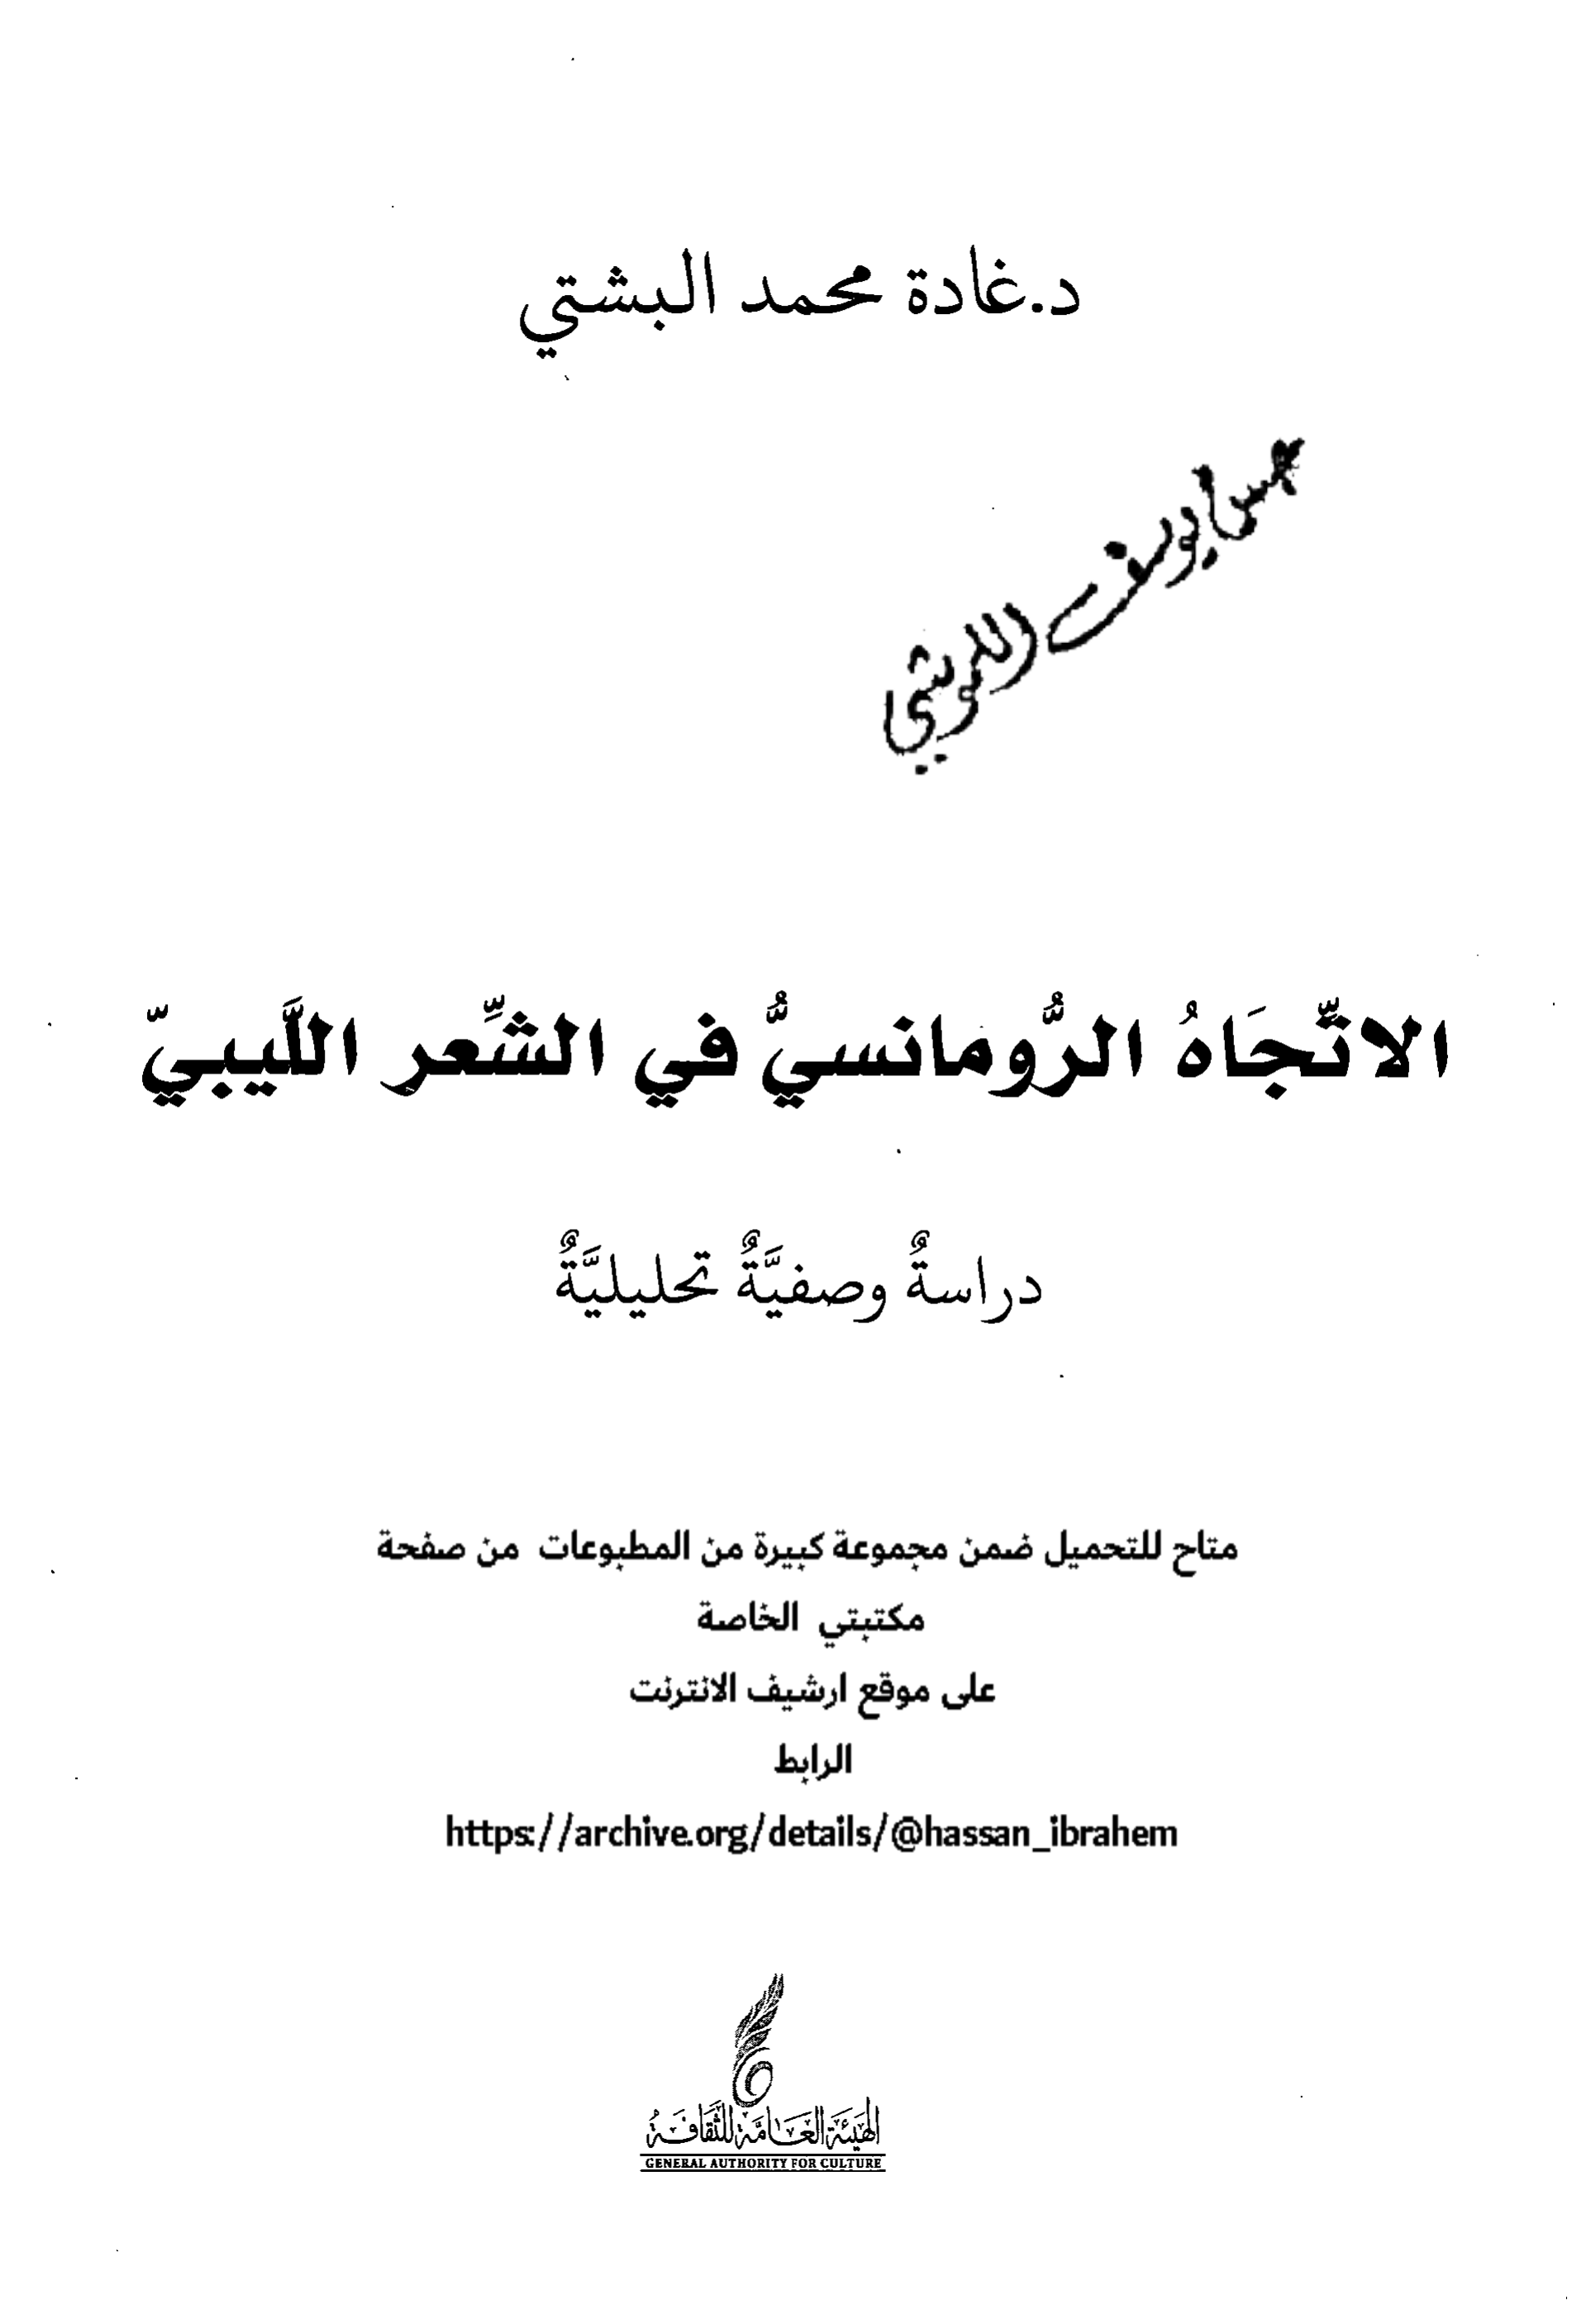 د.غادة محمد البشتي
يوسف
الاتّجَاهُ الرُّومانسيُّ في الشِّعرِ اللَّيبيّ
دراسةٌ وصفيَّةٌ تحليليَّةٌ
متاح للتحميل ضمن مجموعة كبيرة من المطبوعات من صفحة
مكتبتي الخاصة
على موقع ارشيف الانترنت
الرابط
https://archive.org/details/@hassan_ibrahem
الهَيئَة العَامَّة للثَّقَافَةُ
GENERAL AUTHORITY FOR CULTURE